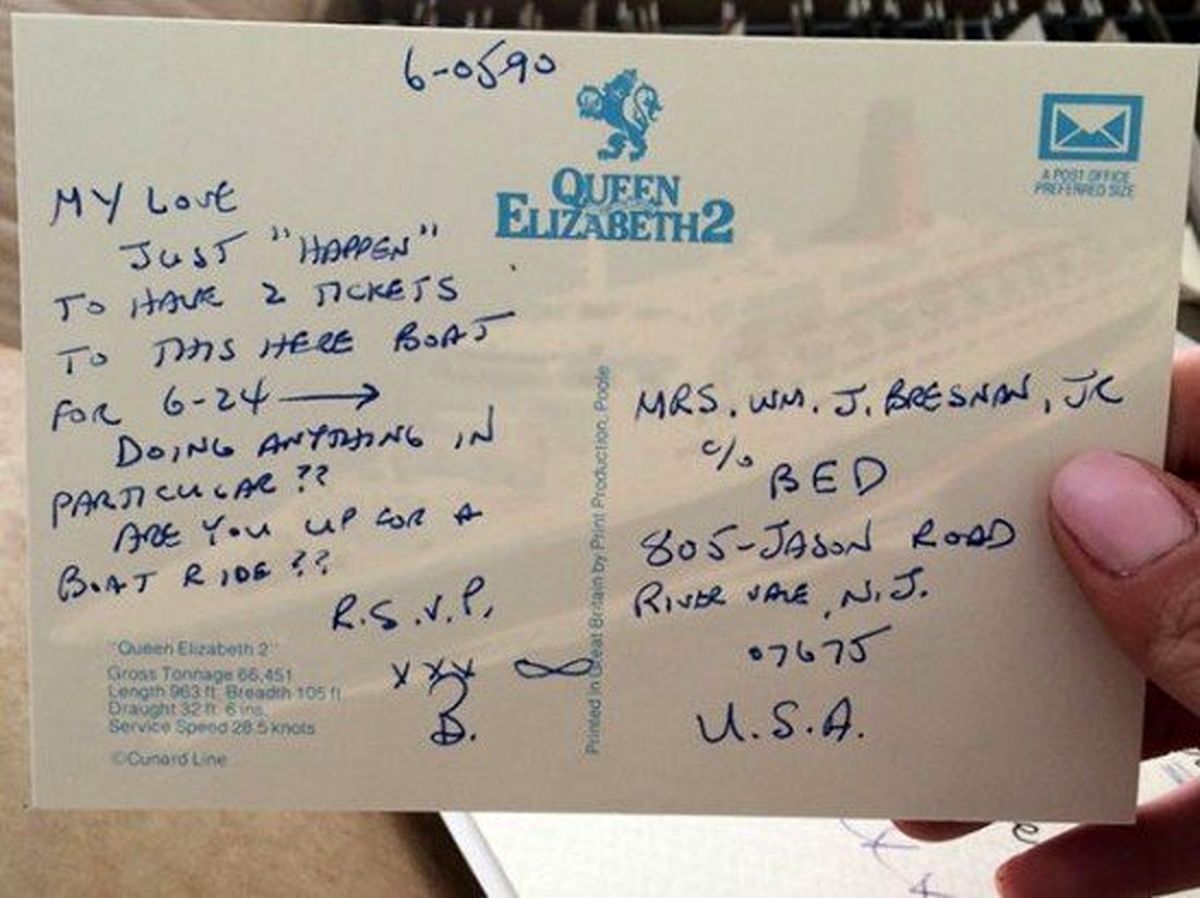 6-0590
QUEEN
ELIZABETH2
A POST OFFICE
PREFERRED SIZE
MY LOVE
JUST "HAPPEN"
TO HAVE 2 TICKETS
TO THIS HERE BOAT
FOR 6-24 →
DOING ANYTHING IN
PARTICULAR ??
ARE YOU UP FOR A
BOAT RIDE ??
R.S.V.P.
XXX ∞
B.
"Queen Elizabeth 2"
Gross Tonnage 66,451
Length 963 ft. Breadth 105 ft.
Draught 32 ft. 6 ins.
Service Speed 28.5 knots
©Cunard Line
Printed in Great Britain by Print Production, Poole
MRS. WM. J. BRESNAN, JR
c/o BED
805-JASON ROAD
RIVER VALE, N.J.
07675
U.S.A.